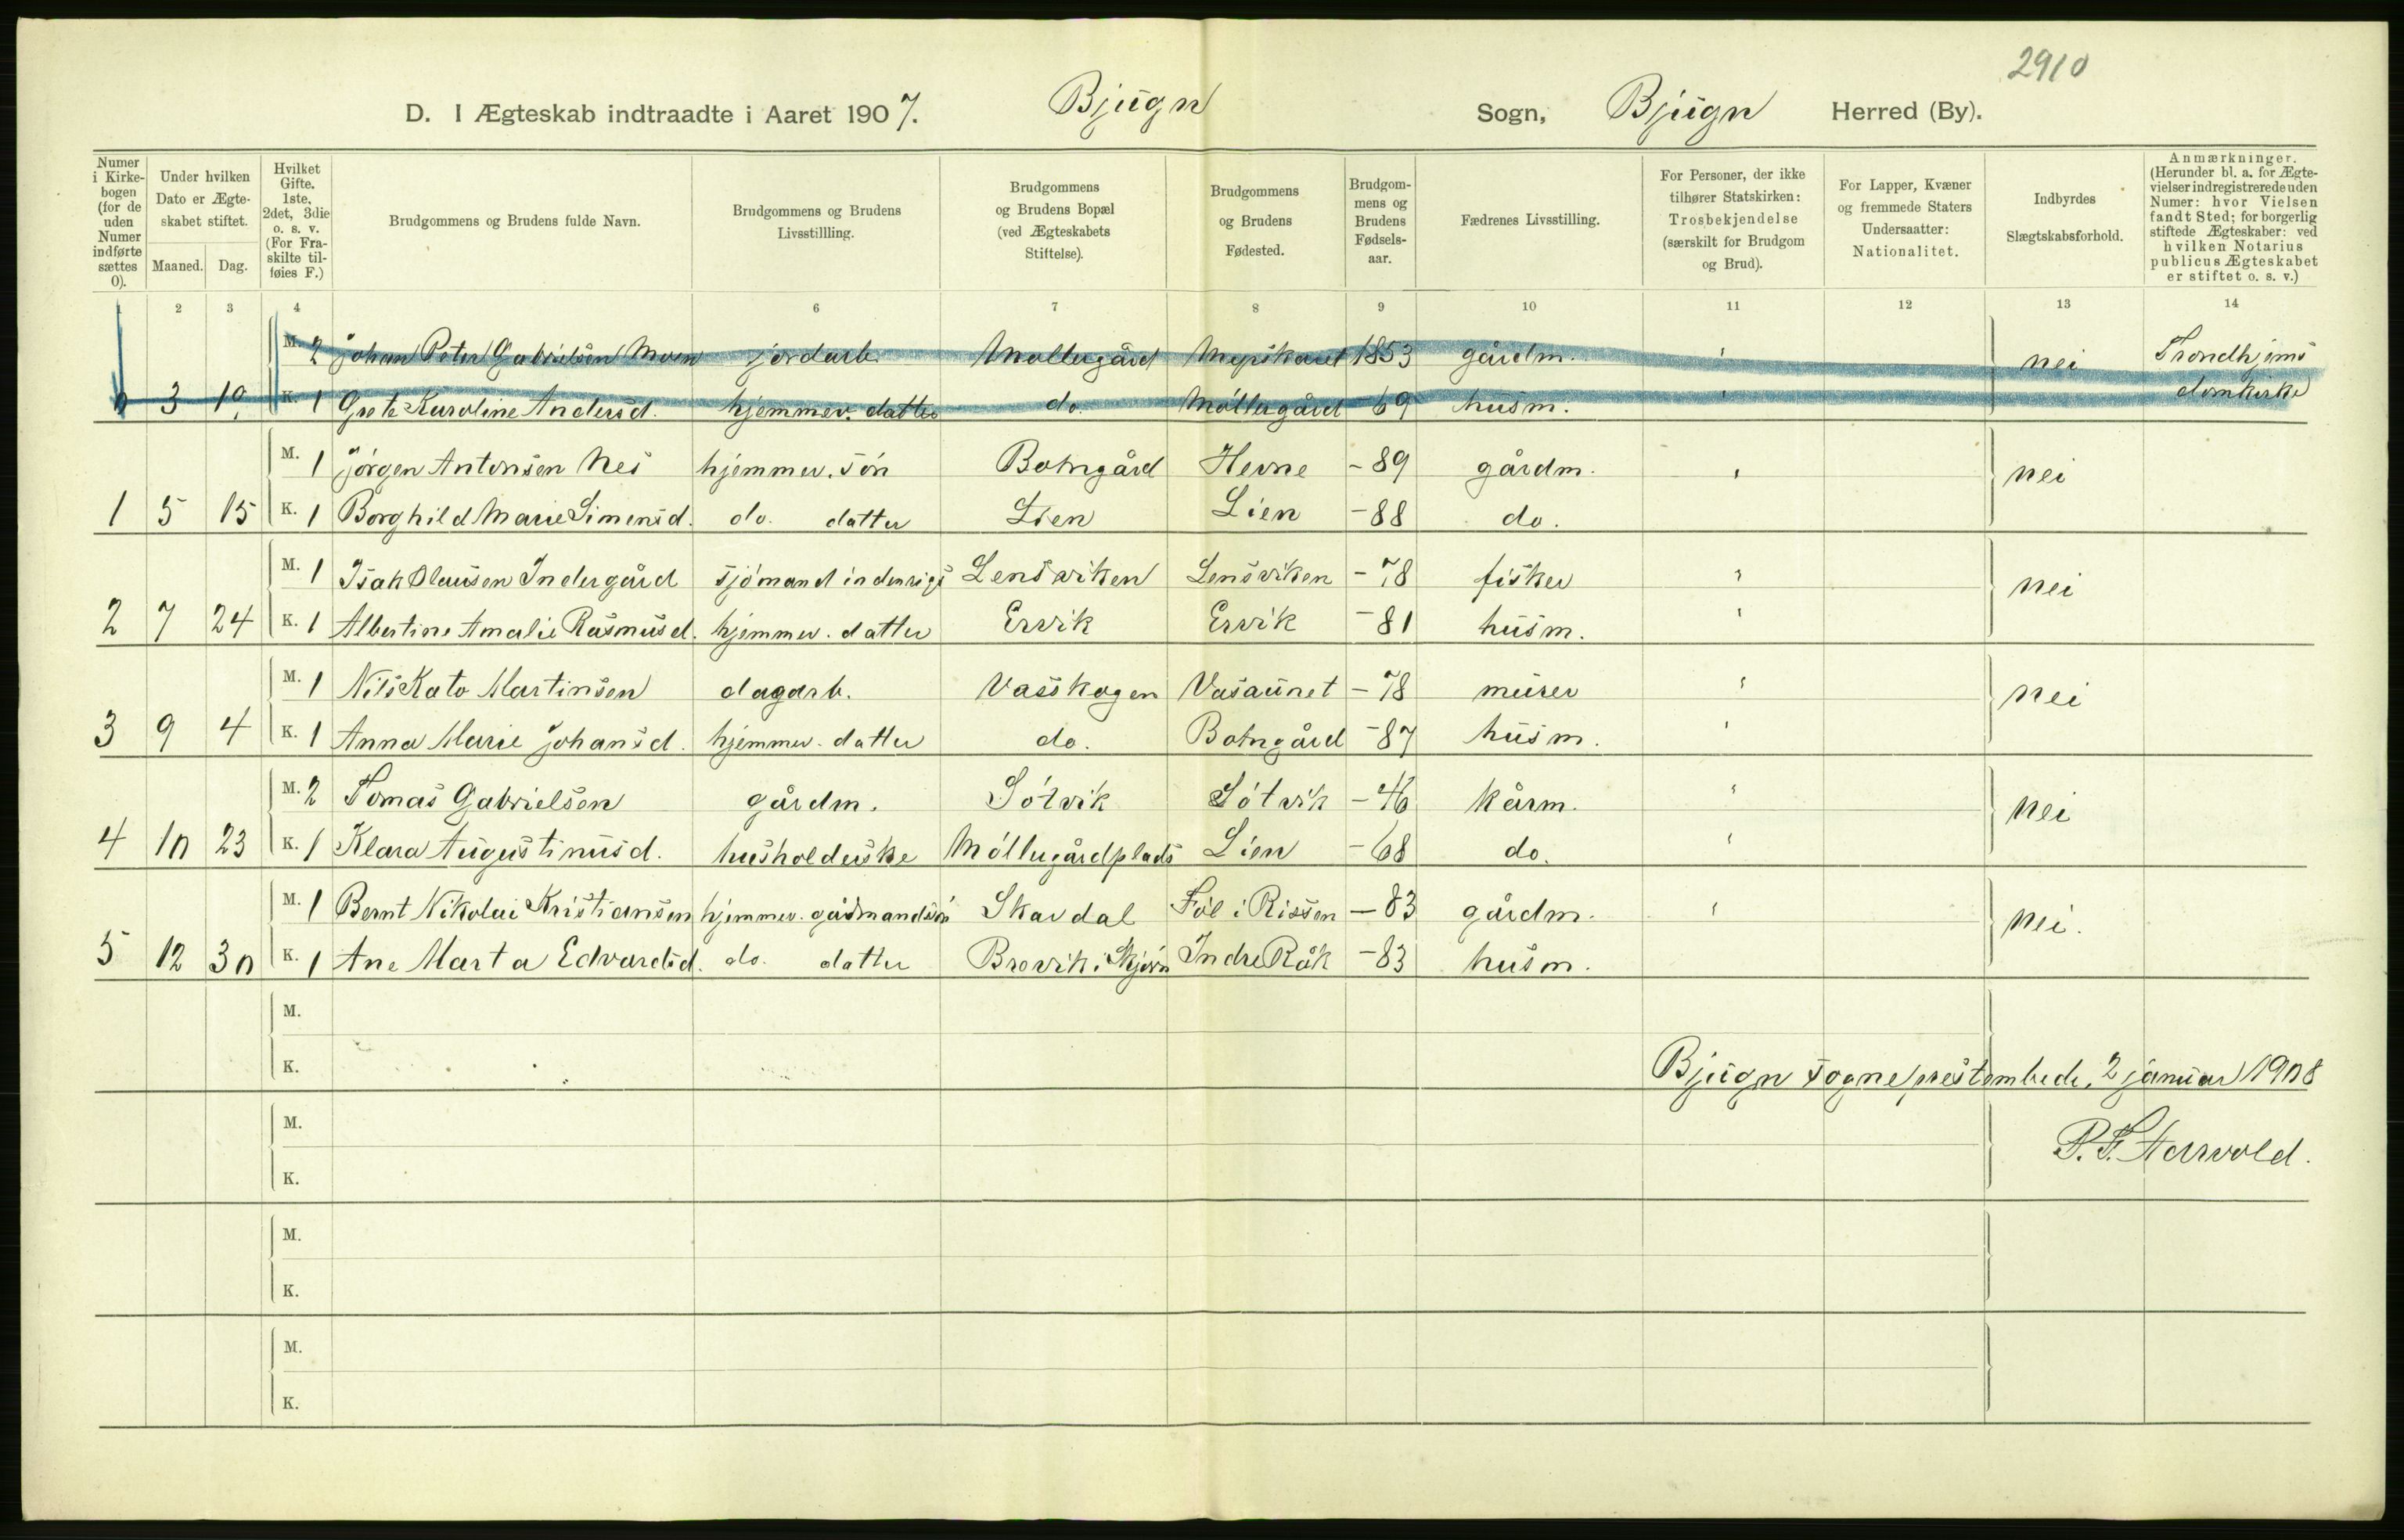 2910
D. I Ægteskab indtraadte i Aaret 1907. Bjugn Sogn, Bjugn Herred (By).
Numer i Kirkebogen (for de uden Numer indførte sættes 0).
Under hvilken Dato er Ægteskabet stiftet.
Maaned. Dag.
Hvilket Gifte. 1ste, 2det, 3die o. s. v. (For Fraskilte tilføies F.)
Brudgommens og Brudens fulde Navn.
Brudgommens og Brudens Livsstillling.
Brudgommens og Brudens Bopæl (ved Ægteskabets Stiftelse).
Brudgommens og Brudens Fødested.
Brudgommens og Brudens Fødselsaar.
Fædrenes Livsstilling.
For Personer, der ikke tilhører Statskirken: Trosbekjendelse (særskilt for Brudgom og Brud).
For Lapper, Kvæner og fremmede Staters Undersaatter: Nationalitet.
Indbyrdes Slægtskabsforhold.
Anmærkninger. (Herunder bl. a. for Ægtevielser indregistrerede uden Numer: hvor Vielsen fandt Sted; for borgerlig stiftede Ægteskaber: ved hvilken Notarius publicus Ægteskabet er stiftet o. s. v.)
1 2 3 4 6 7 8 9 10 11 12 13 14
M. 2 Johan Peter Gabrielsen Moen jordarb. Møllegård Mepskaret 1853 gårdm. " nei Trondhjems
0 3 10 K. 1 Grete Karoline Andersd. hjemmev. datter do. Møllegård 69 husm. " domkirke
M. 1 Jørgen Antonsen Nes hjemmev. søn Botngård Hevne -89 gårdm. " nei
1 5 15 K. 1 Borghild Marie Simensd. do. datter Lien Lien -88 do.
M. 1 Isak Olausen Indergård sjømand indenrigs Lensviken Lensviken -78 fisker " nei
2 7 24 K. 1 Albertine Amalie Rasmusd. hjemmev. datter Ervik Ervik -81 husm. "
M. 1 Nils Kato Martinsen dagarb. Vasskogen Vasaunet -78 murer " nei
3 9 4 K. 1 Anna Marie Johansd. hjemmev. datter do. Botngård -87 husm. "
M. 2 Tomas Gabrielsen gårdm. Søtvik Søtvik -46 kårm. " nei
4 10 23 K. 1 Klara Augustinusd. husholderske Møllegårdplads Lien -68 do. "
M. 1 Bernt Nikolai Kristiansen hjemmev. gårdmandsøn Skardal Føl i Rissen -83 gårdm. " nei.
5 12 30 K. 1 Ane Marta Edvardsd. do. datter Brevik i Skjørn Indre Råk -83 husm.
M.
K. Bjugn sogneprestembede, 2 januar 1908
M. P. T. Harvold.
K.
M.
K.
M.
K.